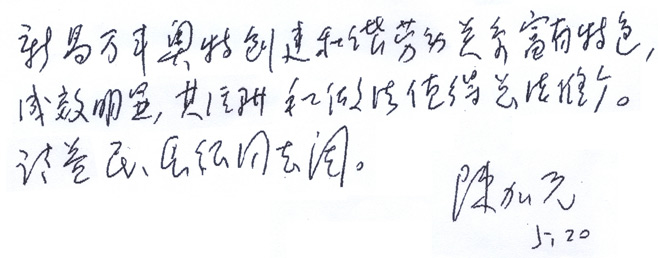 新昌万丰奥特创建和谐劳动关系富有特色,
成效明显,其经验和做法值得总结推广。
请益民、
陳加元
5.20